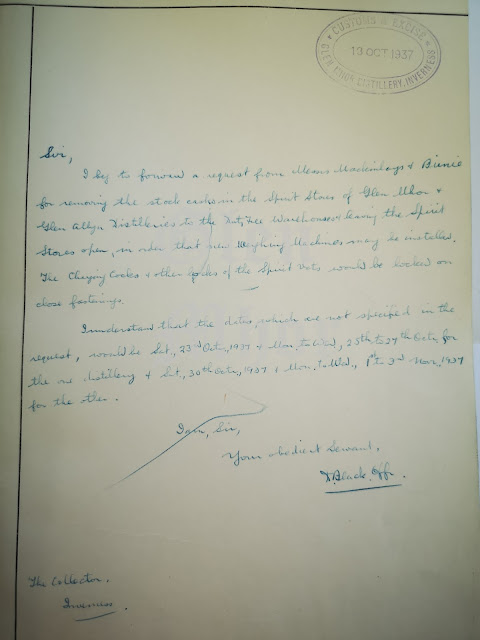 CUSTOMS & EXCISE
13 OCT 1937
GLEN MHOR DISTILLERY, INVERNESS
Sir,
I beg to forward a request from Messrs Mackinlays & Birnie
for removing the stock casks in the Spirit Stores of Glen Mhor &
Glen Albyn Distilleries to the Duty Free Warehouses & leaving the Spirit
Stores open, in order that new Weighing Machines may be installed.
The Charging Cocks & other cocks of the Spirit Vats would be locked on
close fastenings.
I understand that the dates, which are not specified in the
request, would be Sat., 23rd Octr., 1937 & Mon. to Wed., 25th to 27th Octr., for
the one distillery & Sat., 30th Octr., 1937 & Mon. to Wed., 1st to 3rd Nov., 1937
for the other.
I am, Sir,
Your obedient Servant,
Black. Offr.
The Collector.
Inverness.